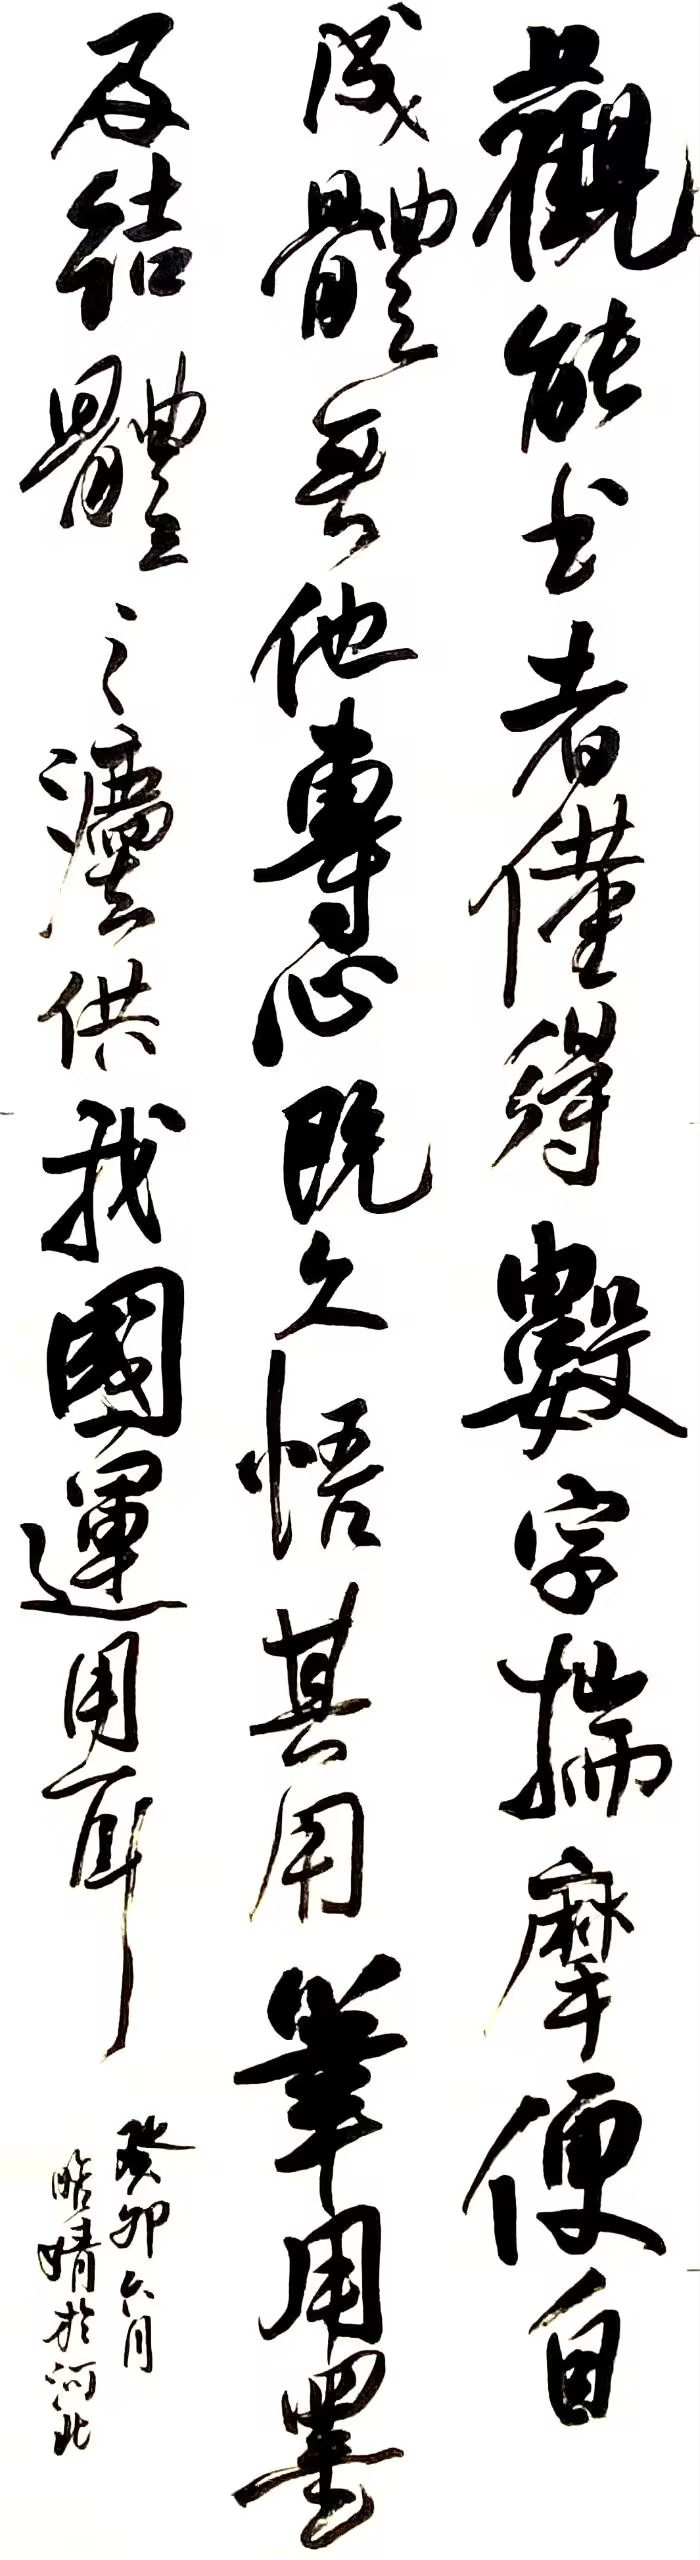 觀能书者僅得數字揣摩便自
成體無他專心既久悟其用筆用墨
及结體之灋供我國運用耳
癸卯六月
晧婧於河北